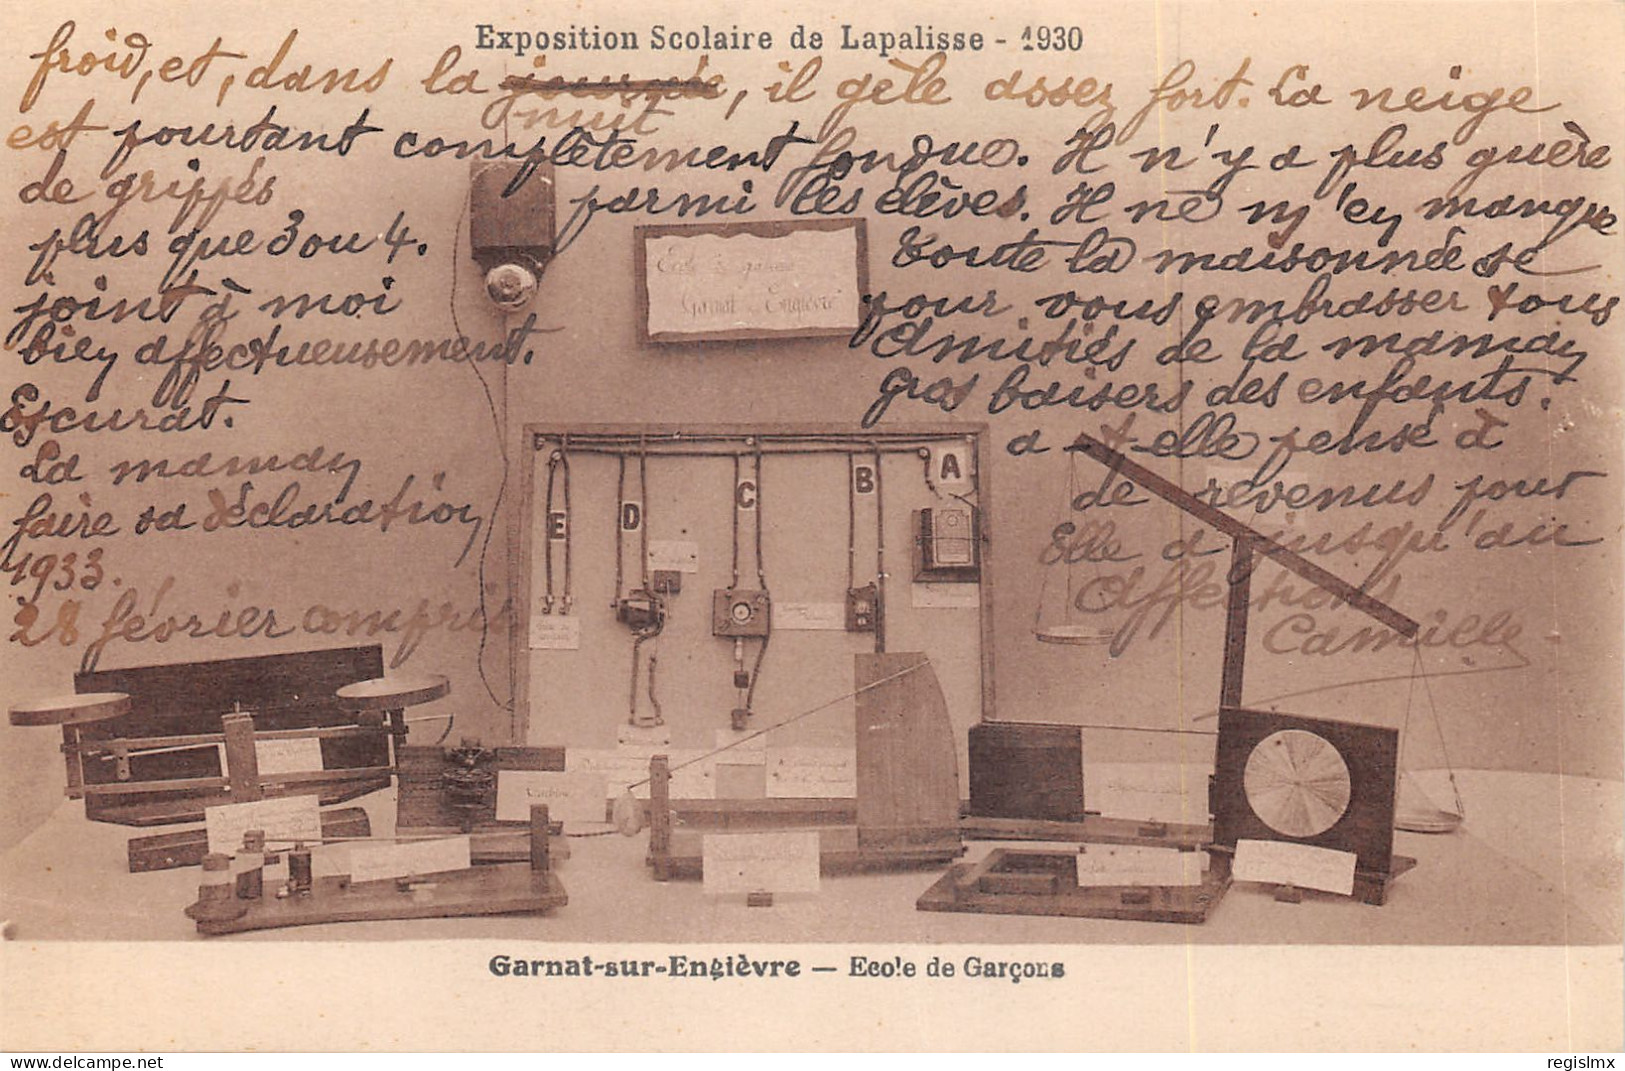 Exposition Scolaire de Lapalisse - 1930
froid, et, dans la journée, il gèle assez fort. La neige
nuit
est pourtant complètement fondue. Il n'y a plus guère
de grippés parmi les élèves. Il ne m'en manque
plus que 3 ou 4. Toute la maisonnée se
joint à moi pour vous embrasser tous
bien affectueusement. Amitiés de la maman
Gros baisers des enfants.
Escurat.
La maman a-t-elle pensé à
faire sa déclaration de revenus pour
1933. Elle a jusqu'au
28 février compris
Affections
Camille
Ecole de garçons
Garnat s. Engièvre
E D C B A
Garnat-sur-Engièvre — Ecole de Garçons
delcampe.net
regislmx